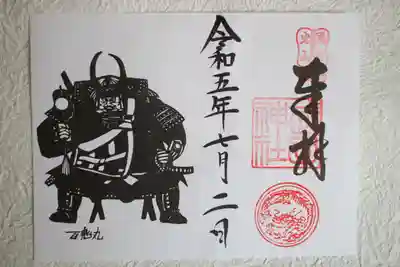 奉拝
神社
令和五年七月二日
百鬼丸